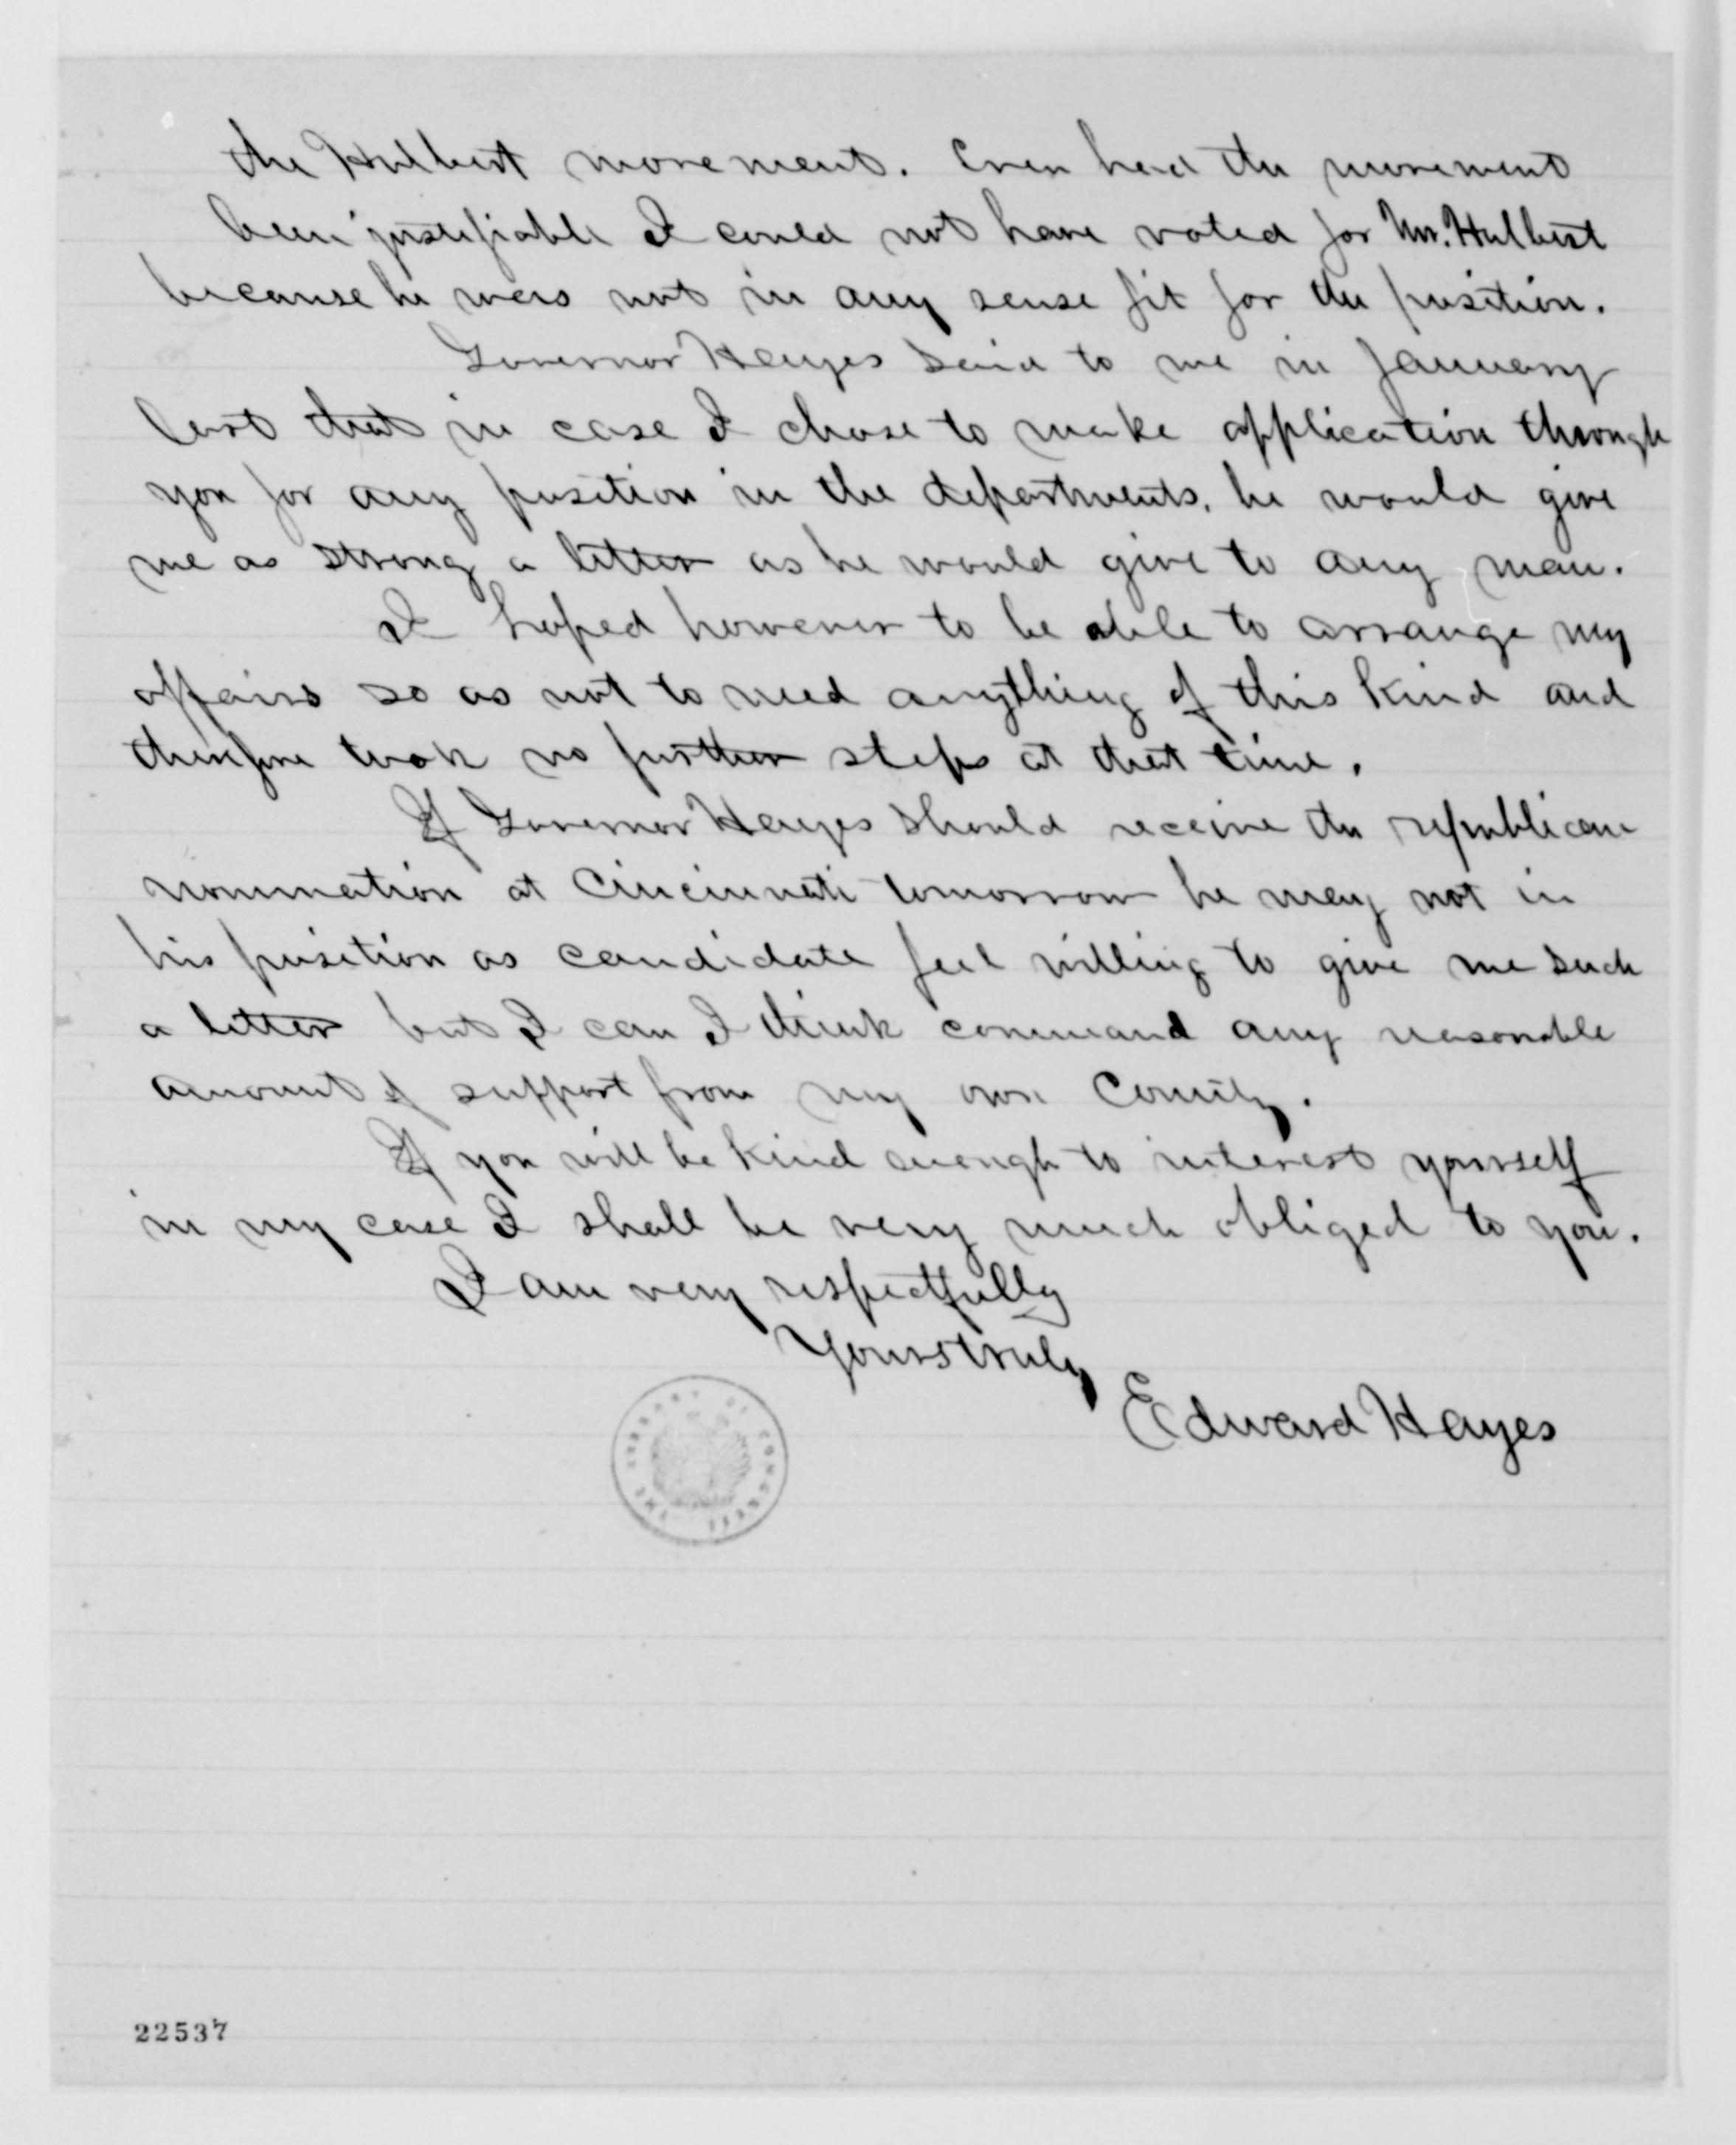 the Hulbert movement. Even had the movement
been justifiable I could not have voted for Mr. Hulbert
because he was not in any sense fit for the position.
Governor Hayes said to me in January
last that in case I chose to make application through
you for any position in the departments, he would give
me as strong a letter as he would give to any man.
I hoped however to be able to arrange my
affairs so as not to need anything of this kind and
therefore took no further steps at that time.
If Governor Hayes should receive the republican
nomination at Cincinnati tomorrow he may not in
his position as candidate feel willing to give me such
a letter but I can I think command any reasonable
amount of support from my own County.
If you will be kind enough to interest yourself
in my case I shall be very much obliged to you.
I am very respectfully
Yours truly
Edward Hayes
THE LIBRARY OF CONGRESS
22537